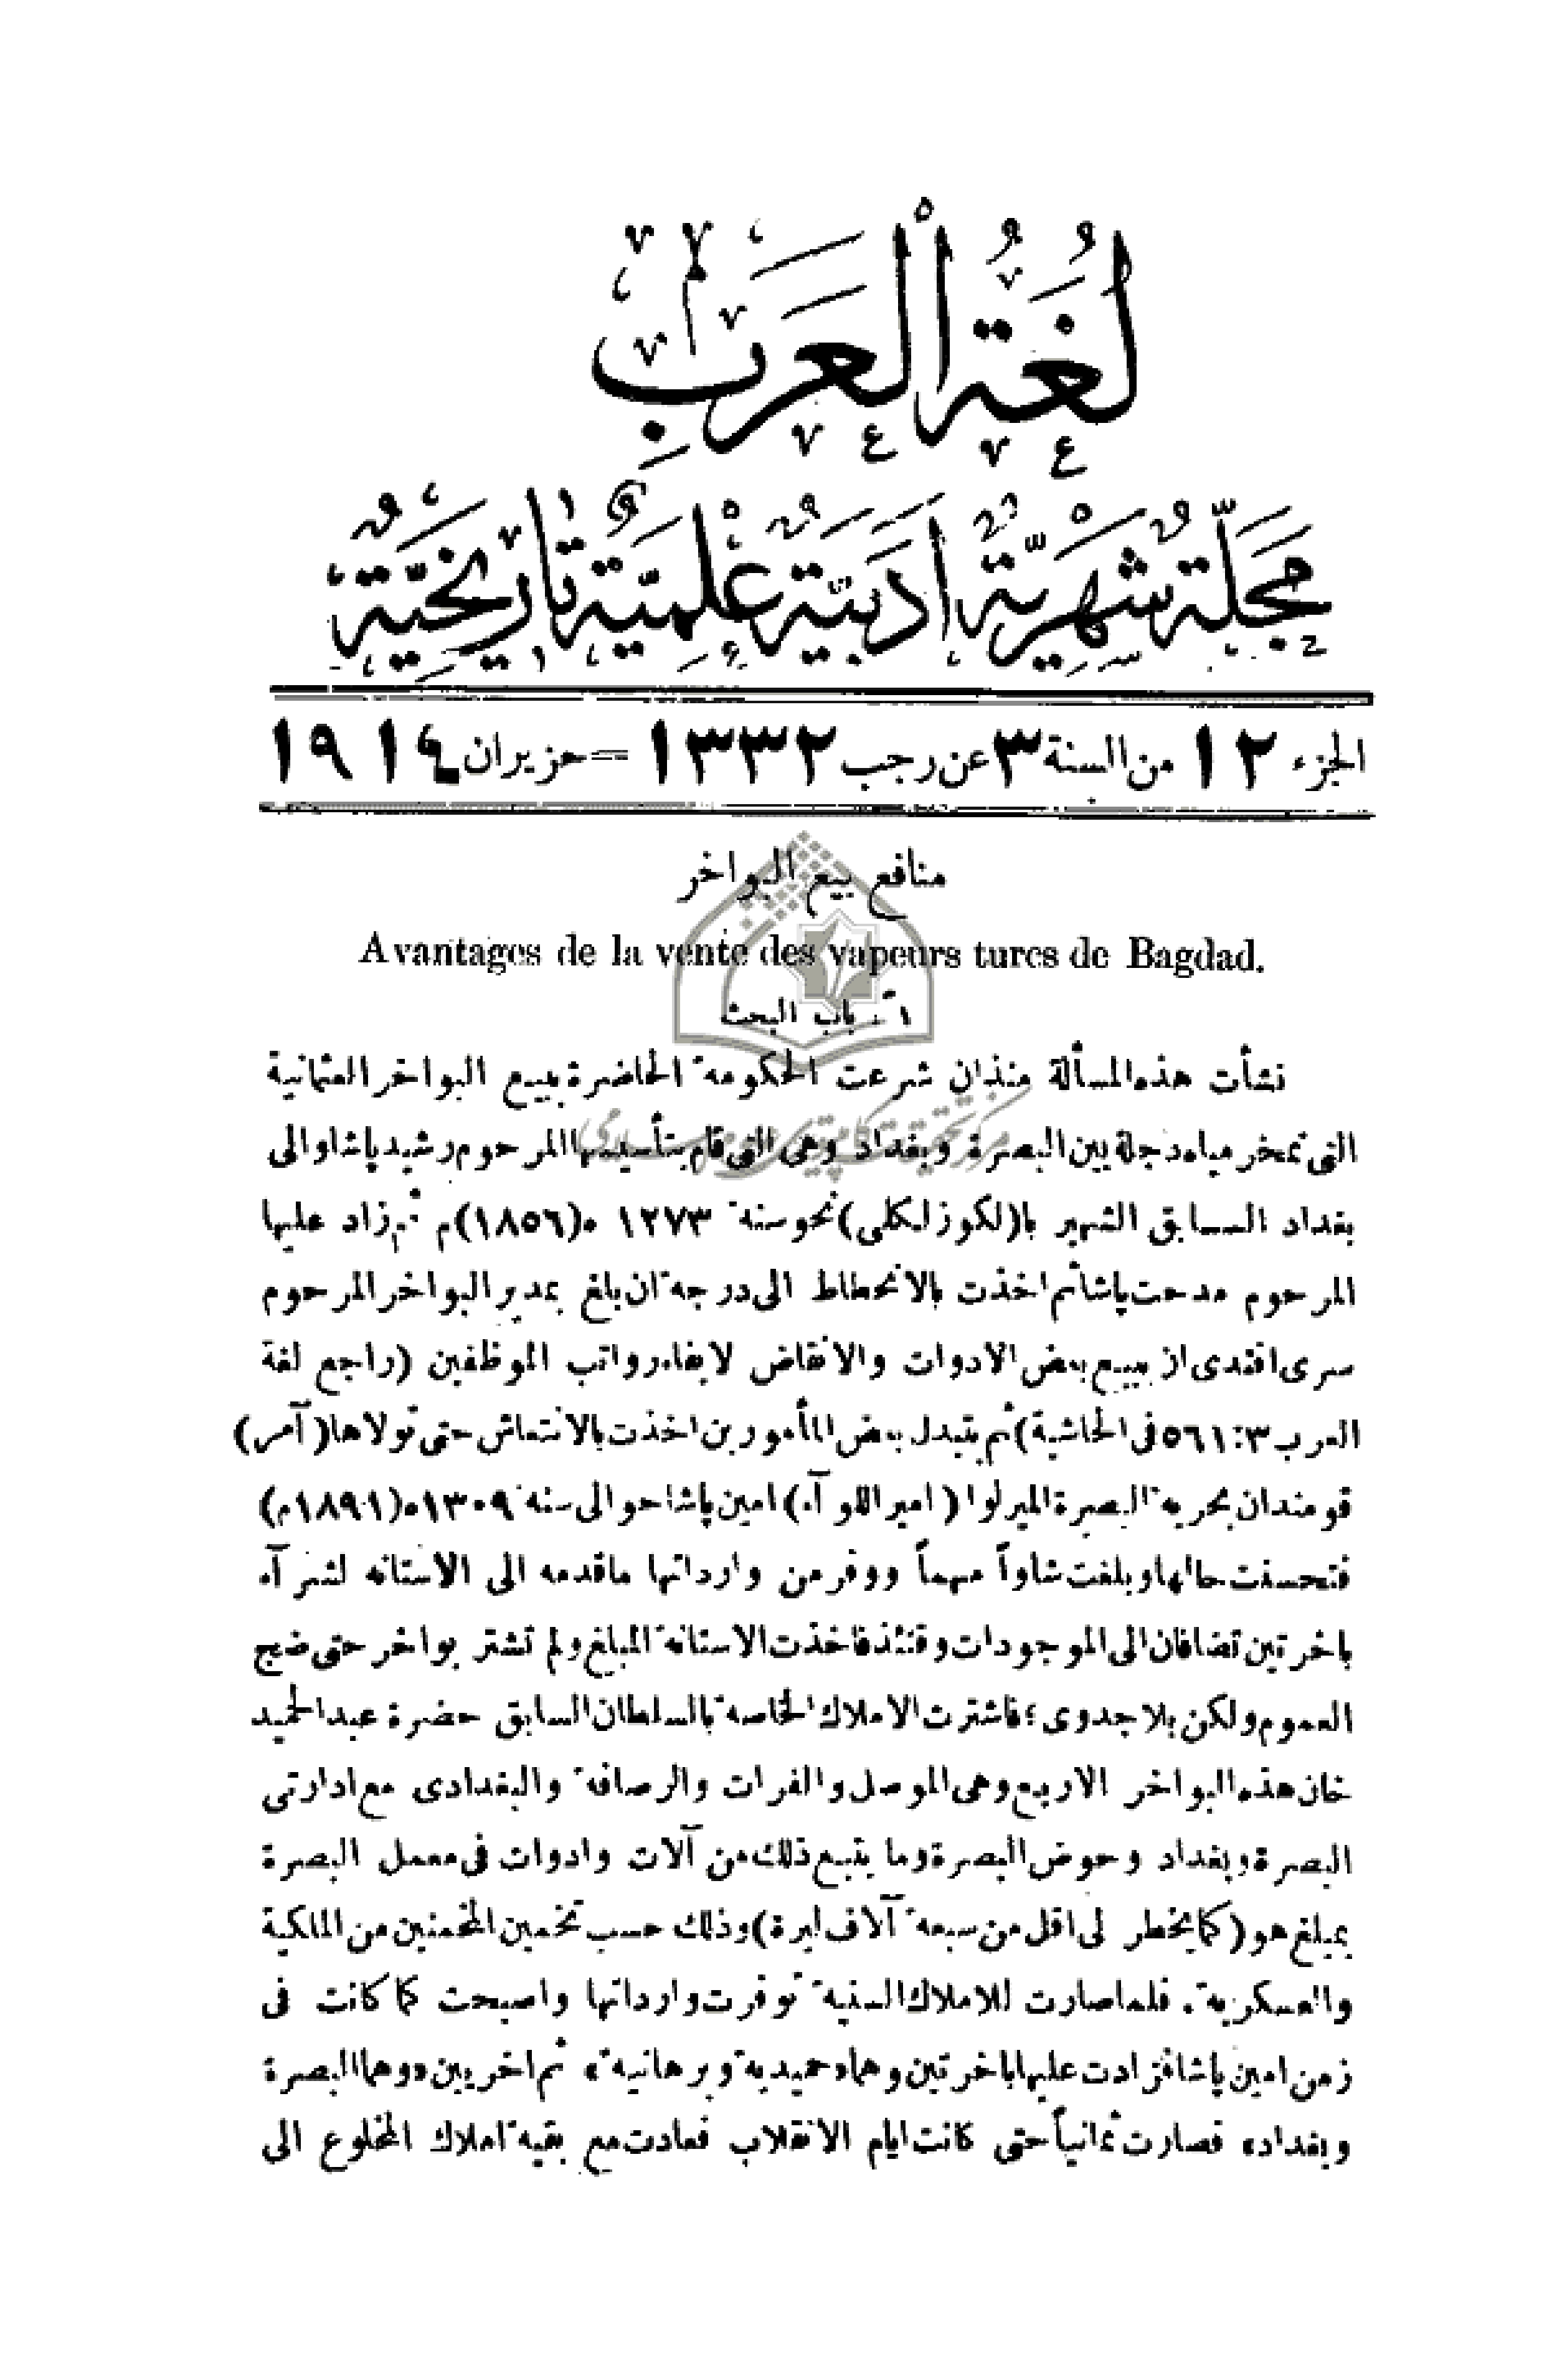 لُغَةُ الْعَرَبِ
مَجَلَّةٌ شَهْرِيَّةٌ اَدَبِيَّةٌ عِلْمِيَّةٌ تَارِيخِيَّةٌ
الجزء ١٢ من السنة ٣ عن رجب ١٣٣٢ = حزيران ١٩١٤
منافع بيع البواخر
Avantages de la vente des vapeurs turcs de Bagdad.
١ً ـ باب البحث
نشأت هذه المسألة منذ ان شرعت الحكومة الحاضرة ببيع البواخر العثمانية
التى تمخر مياه دجلة بين البصرة وبغداد وهى التى قام بتأسيسها المرحوم رشيد پاشا والى
بغداد السابق الشهير با(لكوزلكلى) نحو سنة ١٢٧٣ ه (١٨٥٦) م ثم زاد عليها
المرحوم مدحت پاشا ثم اخذت بالانحطاط الى درجة ان بلغ بمدير البواخر المرحوم
سرى افندى از يبيع بعض الادوات والانقاض لايفاء رواتب الموظفين (راجع لغة
العرب ٣ : ٥٦١ فى الحاشية) ثم بتبدل بعض المأمورين اخذت بالانتعاش حتى تولاها (آمر)
قومندان بحرية البصرة الميرلوا (امير اللوآء) امين پاشا حوالى سنة ١٣٠٩ه (١٨٩١م)
فتحسنت حالها وبلغت شاواً مهماً ووفر من وارداتها ماقدمه الى الاستانه لشرآء
باخرتين تضافان الى الموجودات وقتئذ فاخذت الاستانة المبلغ ولم تشتر بواخر حتى ضج
العموم ولكن بلا جدوى ؛ فاشترت الاملاك الخاصة بالسلطان السابق حضرة عبد الحميد
خان هذه البواخر الاربع وهى الموصل والفرات والرصافة والبغدادى مع ادارتى
البصرة وبغداد وحوض البصرة وما يتبع ذلك من آلات وادوات فى معمل البصرة
بمبلغ هو (كما يخطر لى اقل من سبعة آلاف ليرة) وذلك حسب تخمين المخمنين من الملكية
والعسكرية . فلما صارت للاملاك السنية توفرت وارداتها واصبحت كما كانت فى
زمن امين پاشا فزادت عليها باخرتين وهما «حميدية وبرهانية» ثم اخريين «وهما البصرة
وبغداد» فصارت ثمانياً حتى كانت ايام الانقلاب فعادت مع بقية املاك المخلوع الى